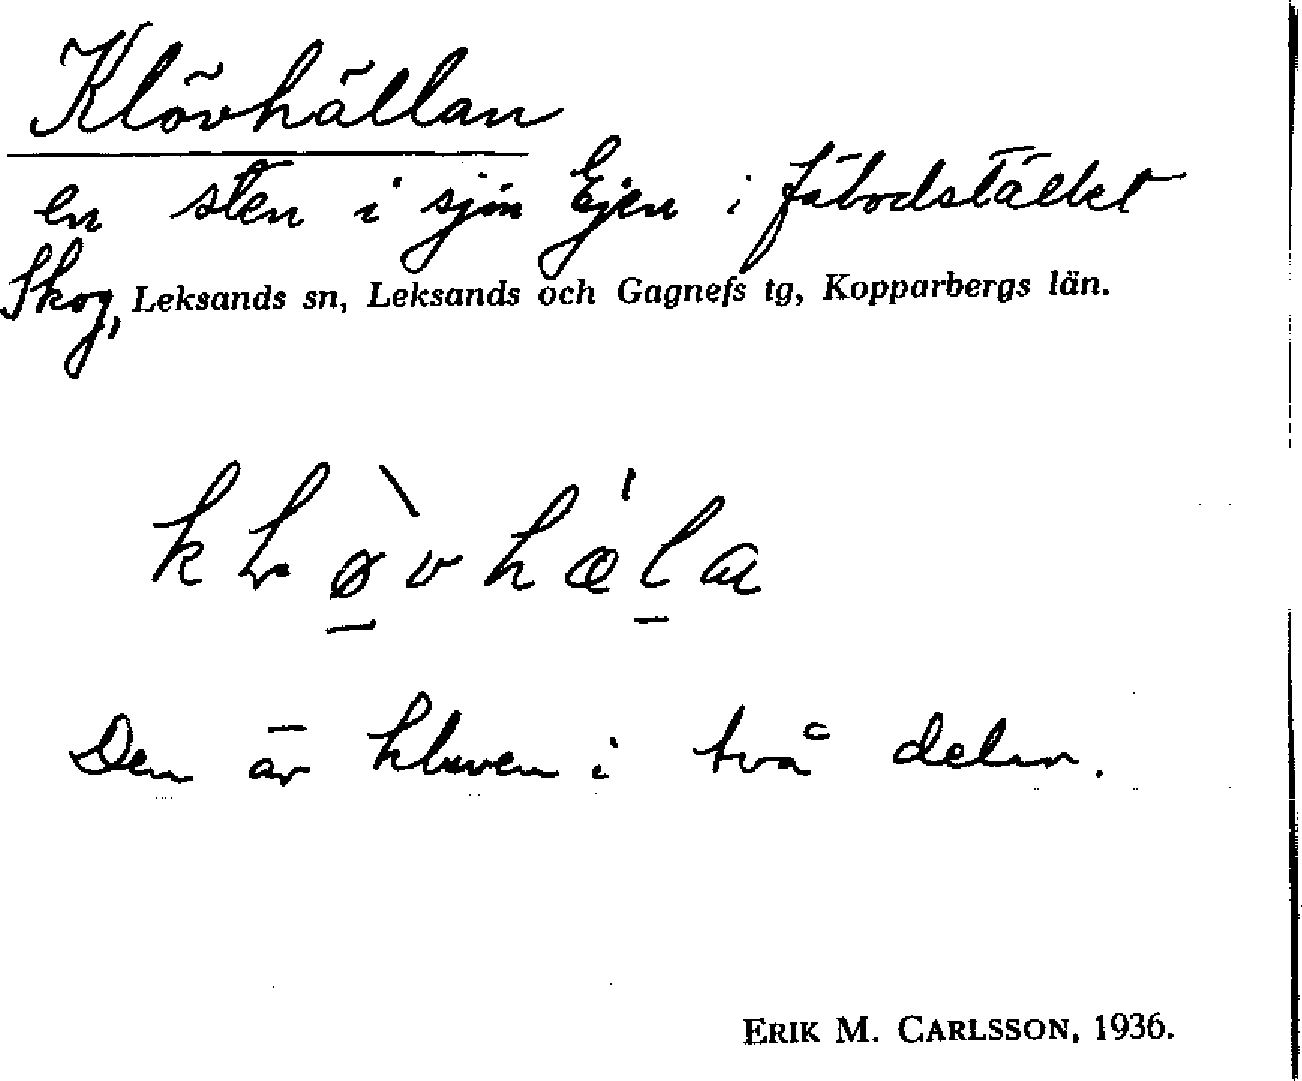 Klövhällan
en sten i sjön Ejen i fäbodstället
Skog, Leksands sn, Leksands och Gagnefs tg, Kopparbergs län.
Den är kluven i två delar.
ERIK M. CARLSSON, 1936.